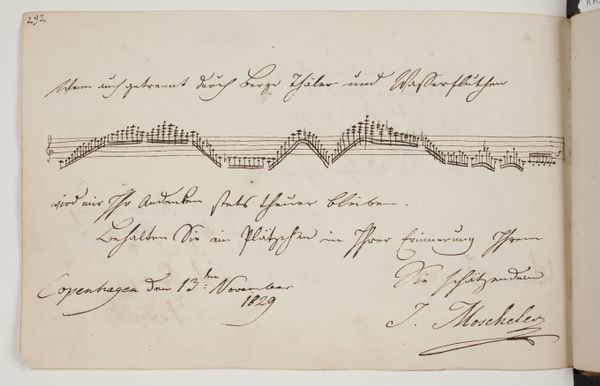 292
Wenn auch getrennt durch Berge Thäler und Wasserfluthen
wird mir Ihr Andenken stets theuer bleiben.
Behalten Sie ein Plätzchen in Ihrer Erinnerung Ihrem
Sie schätzenden
Copenhagen den 13ten November
1829
J. Moscheles